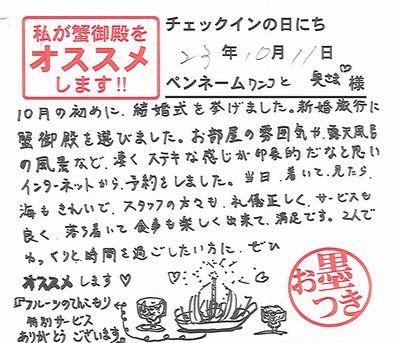 私が蟹御殿を
オススメ
します!!
チェックインの日にち
23年10月11日
ペンネームワンコと 奥さま 様
10月の初めに、結婚式を挙げました。新婚旅行に
蟹御殿を選びました。お部屋の雰囲気や、露天風呂
の風景など、凄くステキな感じが印象的だなと思い
インターネットから、予約をしました。当日、着いて、見たら、
海もきれいで、スタッフの方々も、礼儀正しく、サービスも
良く、落ち着いて食事も楽しく出来て、満足です。2人で
ゆっくりと時間を過ごしたい方に、ぜひ
オススメします♡
『フルーツのてんこもり
特別サービス
ありがとうございます。
お墨つき